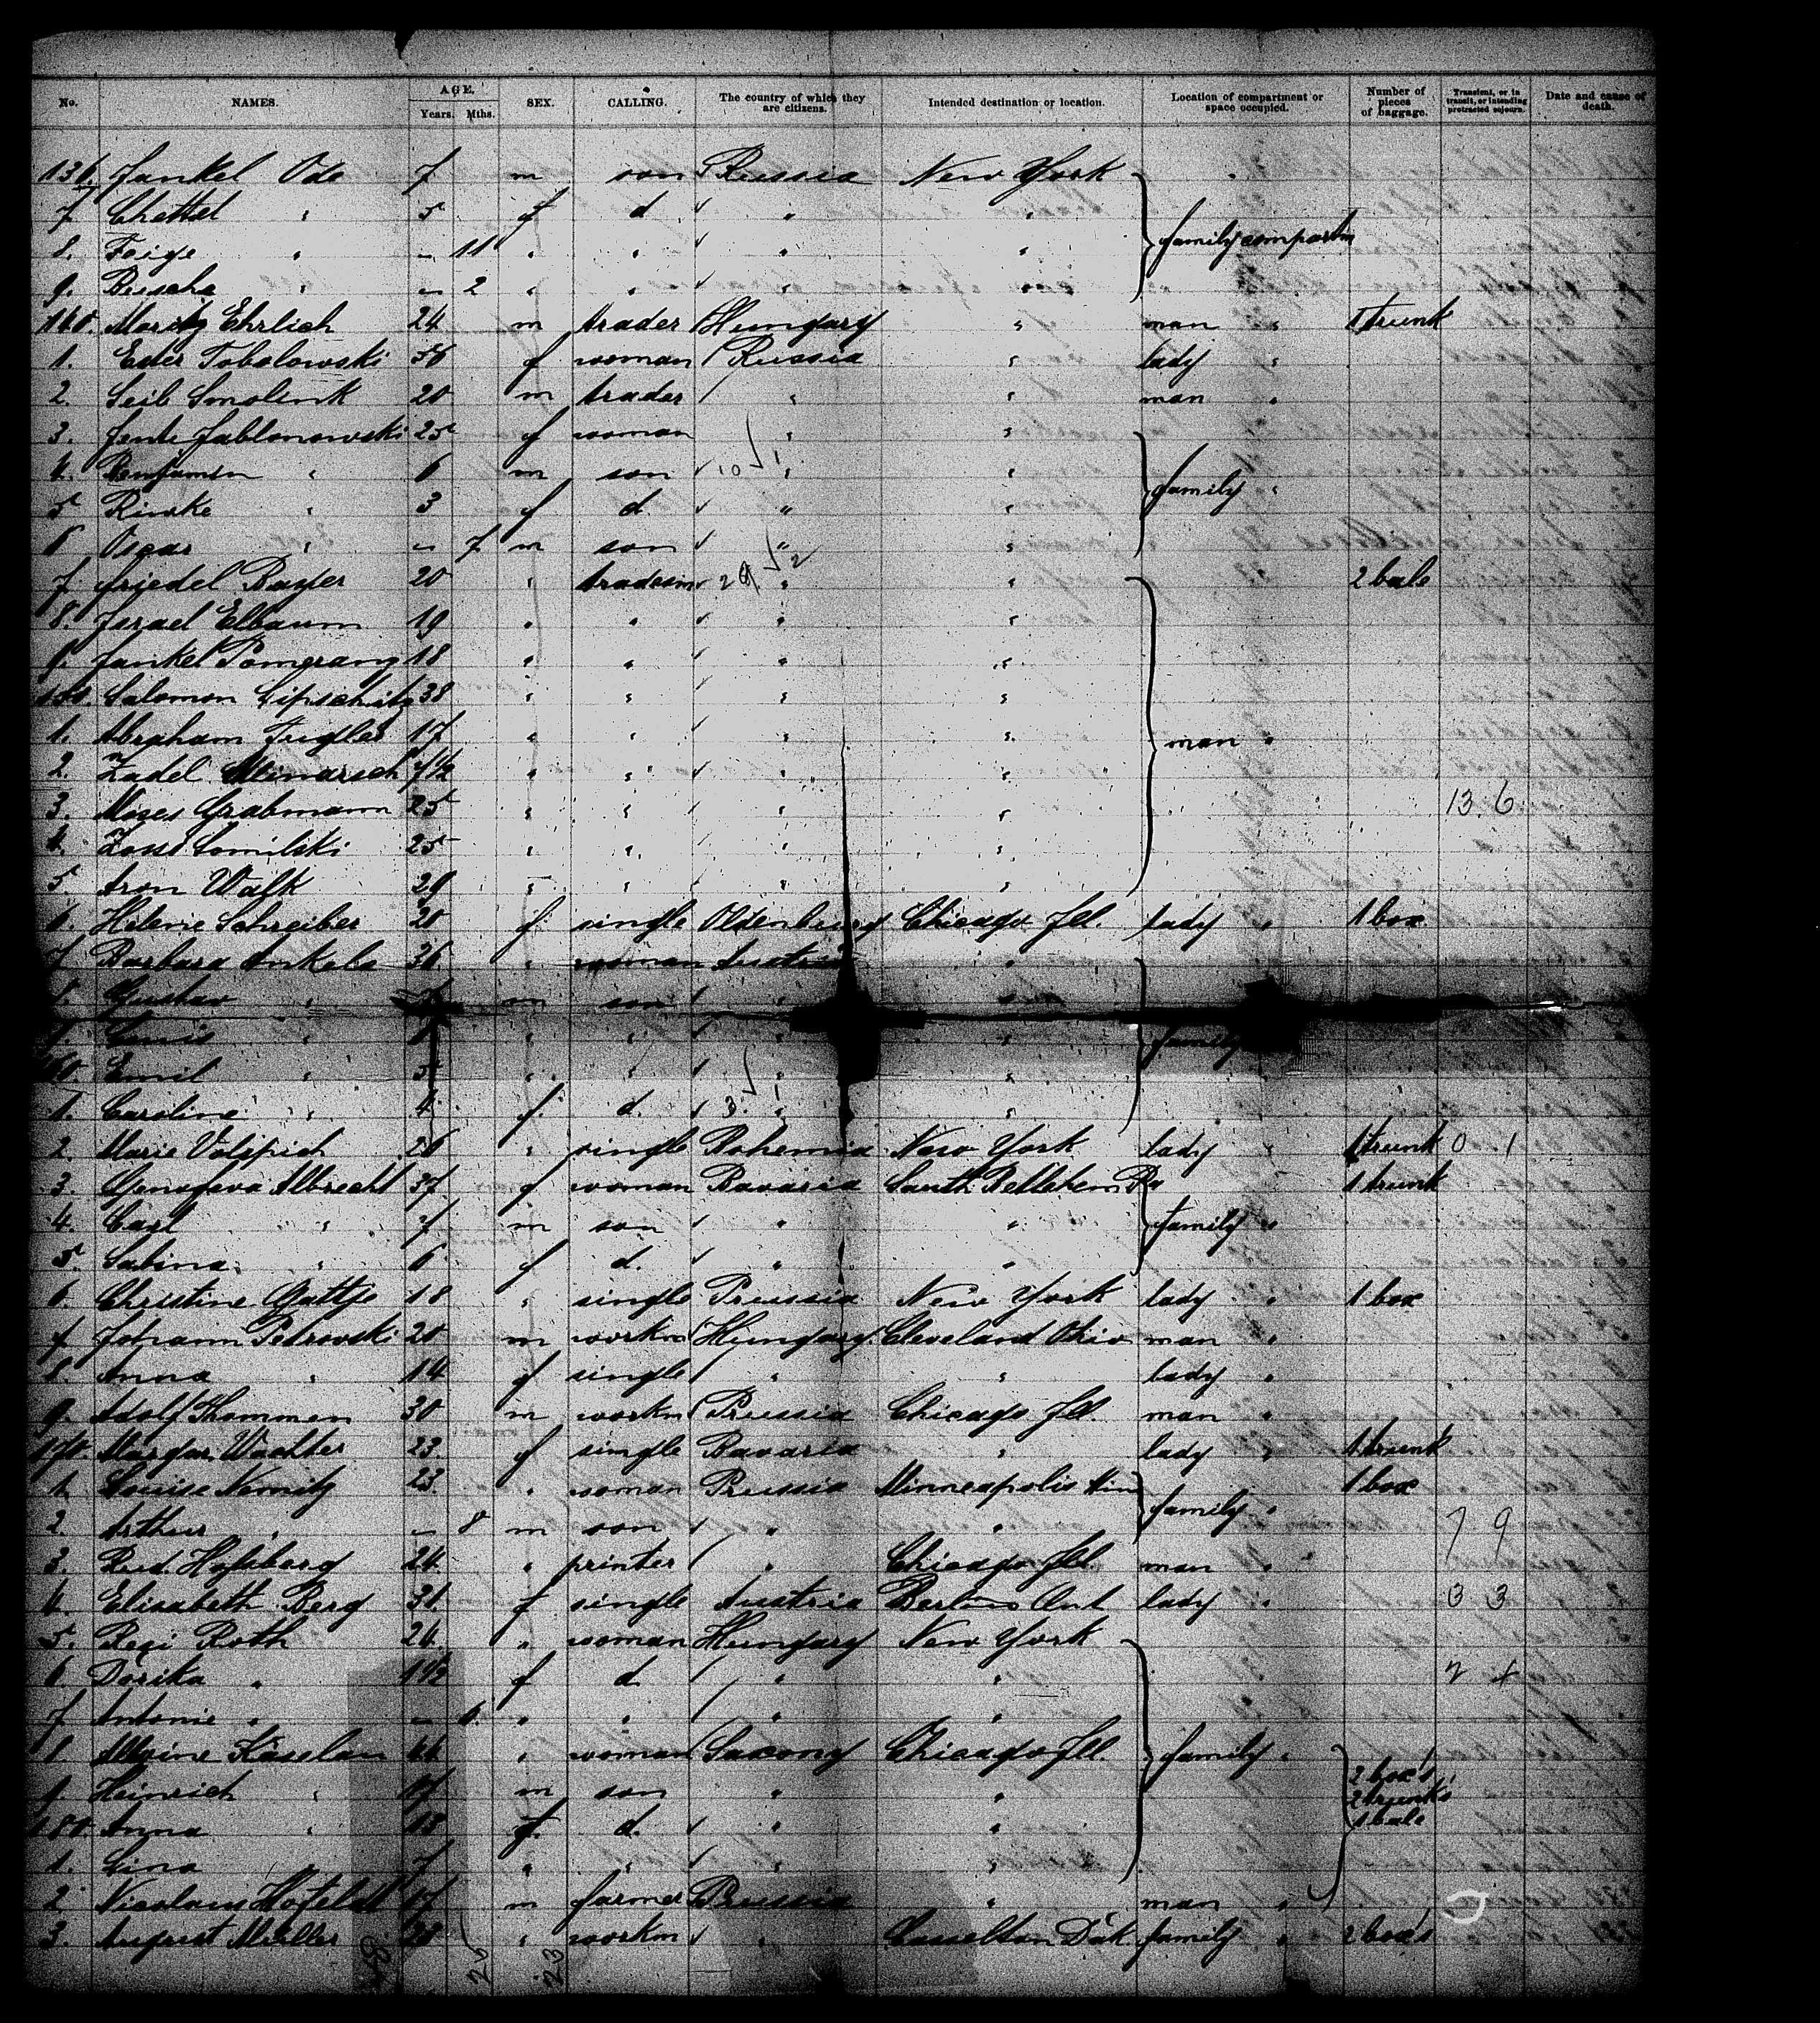 No. NAMES. AGE. Years. Mths. SEX. CALLING. The country of which they are citizens. Intended destination or location. Location of compartment or space occupied. Number of pieces of baggage. Transient, or in transit, or intending protracted sojourn. Date and cause of death.
136. Jankel Ode 7 m son Russia New York
7. Chettel " 5 f d " " family compartm
8. Feige " - 11 " " " "
9. Beische " - 2 " " " "
140. Moritz Ehrlich 24 m trader Hungary " man " 1 trunk
1. Ester Tobolowski 56 f woman Russia " lady "
2. Leib Smolink 20 m trader " " man "
3. Jente Jablonowski 25 f woman " "
4. Benjamin " 6 m son 10 1 " " family "
5. Riwke " 3 f d " "
6 Oscar " - 7 m son " "
7. Friedel Bayer 20 " tradesm 29 2 " " 2 bale
8. Israel Elbaum 19 " " " "
9. Jankel Pomeranz 18 " " " "
150. Salomon Lipschitz 38 " " " "
1. Abraham Fugler 17 " " " " man "
2. Zadel 9 1/2 " " " "
3. Moses Grabmann 25 " " " " 13 6
4. Lomilski 25 " " " "
5 Aron Walk 29 " " " "
6. Helene Schreiber 20 f single Oldenburg Chicago Ill. lady " 1 box
7 Barbara Ankela 36 " woman Austria "
8. Gustav " m son " "
9. " " " " " family
160. Emil " 5 " " " "
1. Caroline " 4 f d. 3. 1 " "
2. Marie 26 " single Bohemia New York lady " 1 trunk 0 1
3. Genofeva Albrecht 37 f woman Bavaria South Bethlehem Pa 1 trunk
4. Carl " 7 m son " " family "
5. Sabina " 6 f d. " "
6. Christine Gattje 18 " single Prussia New York lady " 1 box
7 Johann Petrovski 20 m workm Hungary Cleveland Ohio man "
8. Anna " 14 f single " " lady "
9. Adolf Thommen 30 m workm Prussia Chicago Ill. man "
170. Margar. Wachter 23 f single Bavaria " lady " 1 trunk
1. Louise Nemitz 23 " woman Prussia Minneapolis Min 1 box
2. Arthur " - 8 m son " " family " 7 9
3. Hofsberg 24 " printer " Chicago Ill. man "
4. Elisabeth Berg 31 f single Austria Berlin Ont lady " 3 3
5. Regi Roth 24 " woman Hungary New York
6. Dorika " 1 1/2 f d. " "
7 Antonie " - 6 " " " "
8 Käselau 44 " woman Saxony Chicago Ill. family "
9. Heinrich " m son " " 2 box's 2 trunks
180. Anna " 18 f d. " " 1 bale
1. Lina " 7 " " " "
2 Nicolaus 17 m farmer Prussia " man "
3. August Müller 28 " workm " Casselton Dak. family " 2 box's